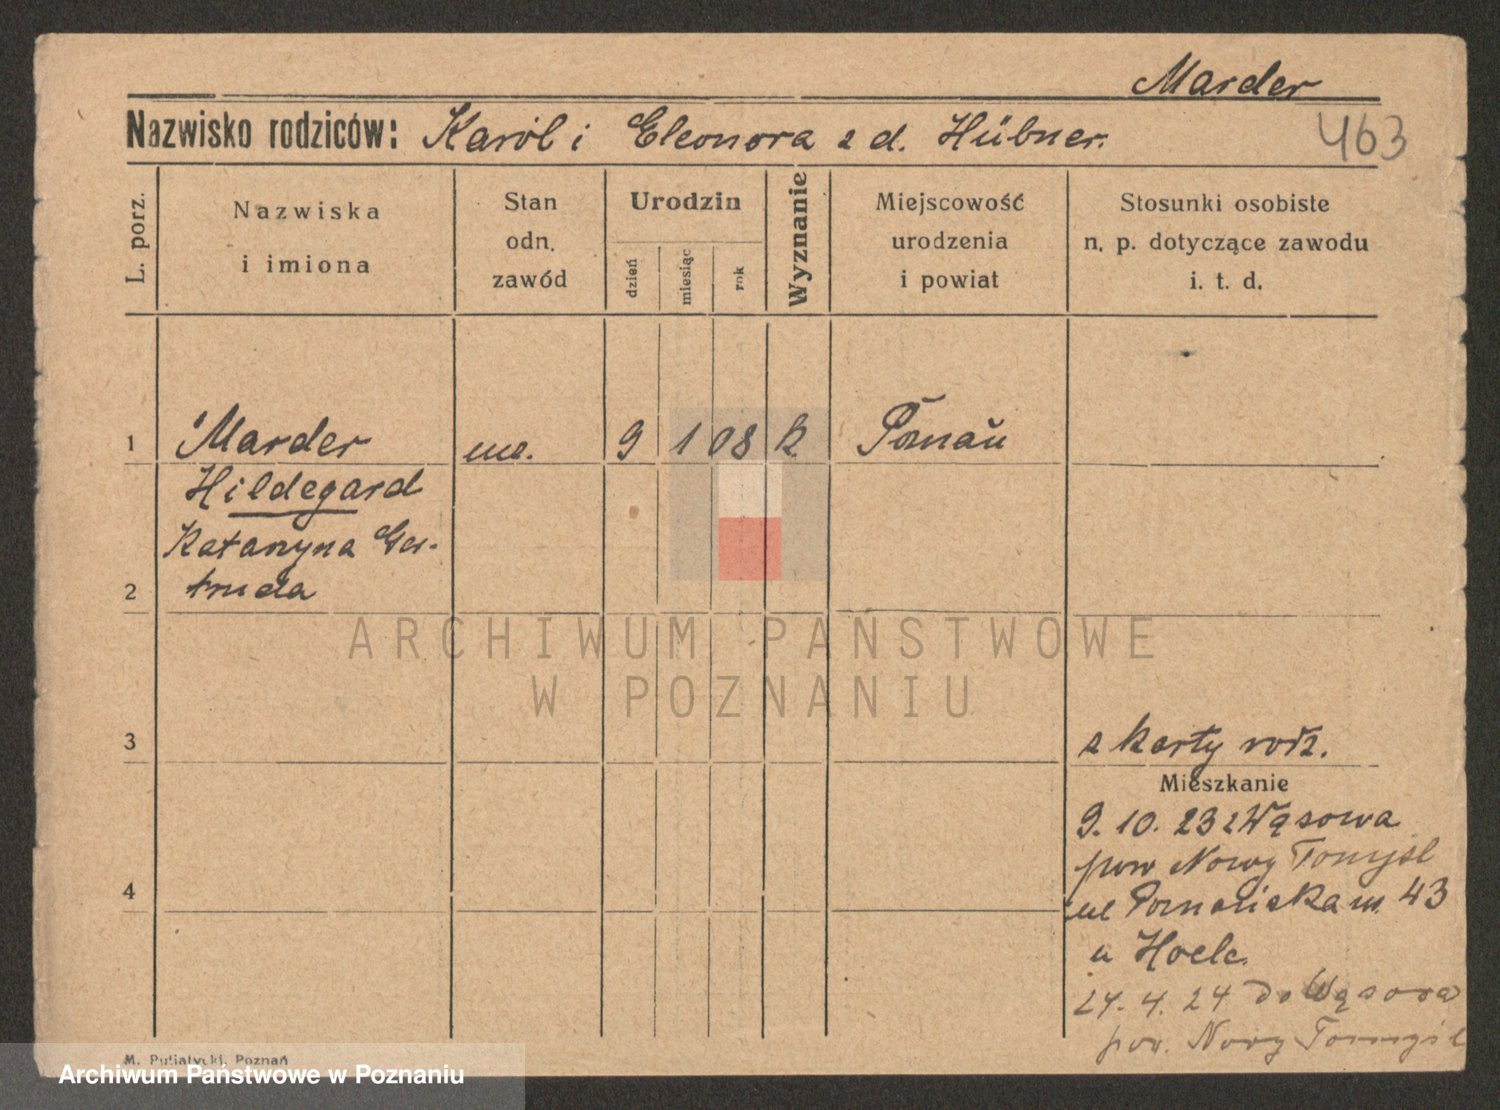 Marder
Nazwisko rodziców: Karól i Eleonora z d. Hübner.
463
L. porz.
Nazwiska
i imiona
Stan
odn.
zawód
Urodzin
dzień
miesiąc
rok
Wyznanie
Miejscowość
urodzenia
i powiat
Stosunki osobiste
n. p. dotyczące zawodu
i. t. d.
1 Marder 9 1 08 k Poznań
Hildegard
Katarzyna Ger-
2 truda
ARCHIWUM PAŃSTWOWE
W POZNANIU
3 z karty rodz.
Mieszkanie
9. 10. 23 z Wąsowa
pow Nowy Tomyśl
4 ul Poznańska 43
u Hoelc.
4. 24 do Wąsowa
pow. Nowy Tomyśl
M. Putiatycki, Poznań
Archiwum Państwowe w Poznaniu